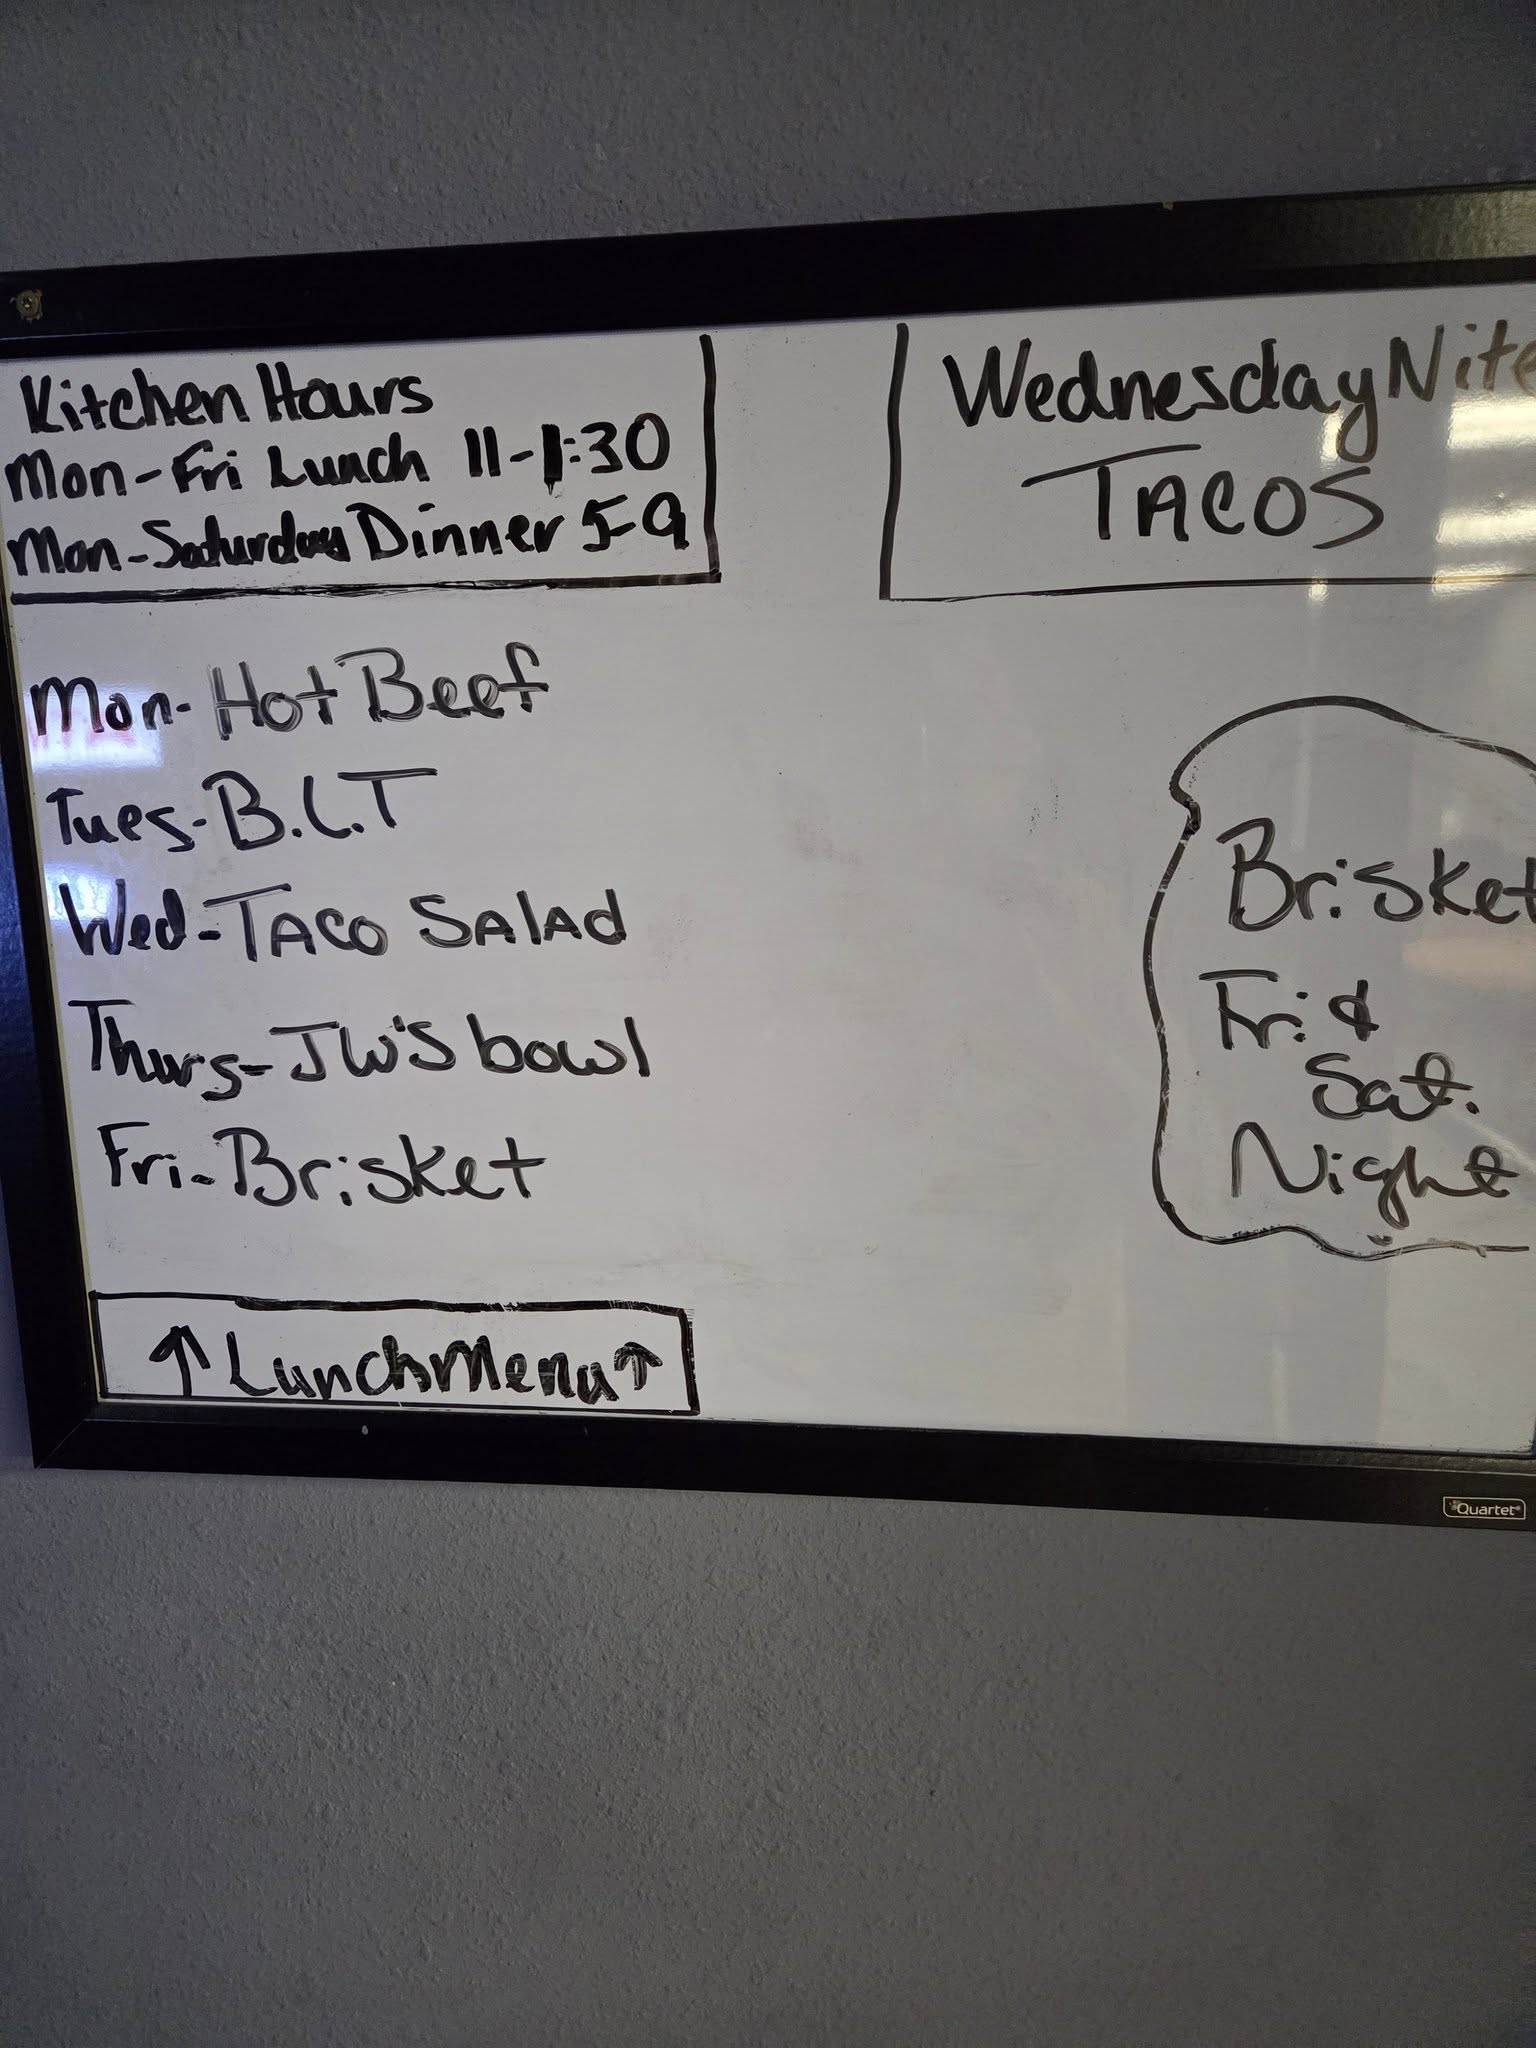 Kitchen Hours
Mon-Fri Lunch 11-1:30
Mon-Saturday Dinner 5-9
Wednesday Nite
TACOS
Mon-Hot Beef
Tues-B.L.T
Wed-TACO SALAD
Thurs-JW'S bowl
Fri-Brisket
↑LunchMenu↑
Brisket
Fri. &
Sat.
Night
Quartet